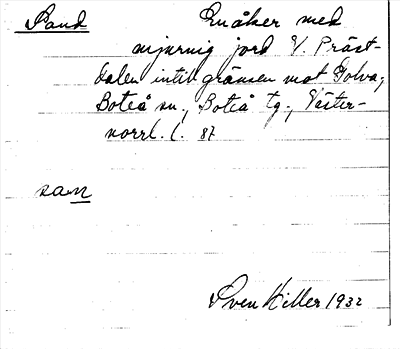 Sand Småker med
mjurnig jord V. Präst-
dalen intill gränsen mot Tolva,
Boteå sn., Boteå tg., Väster-
norrl. l. 87
san
Sven Hiller 1932